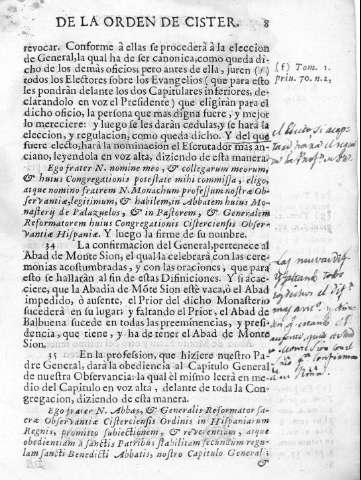 DE LA ORDEN DE CISTER. 8
revocar. Conforme à ellas se procederà à la eleccion
de General, la qual ha de ser canonica, como queda di-
cho de los demàs oficios; pero antes de ella, juren (f)
todos los Electores sobre los Evangelios (que para esto
les pondràn delante los dos Capitulares inferiores, de-
clarandolo en voz el Presidente) que eligiràn para el
dicho oficio, la persona que mas digna fuere, y mejor
lo mereciere: y luego se les daràn cedulas, y se harà la
eleccion, y regulacion, como queda dicho. Y del que
fuere electo, harà la nominacion el Escrutador mas an-
ciano, leyendola en voz alta, diziendo de esta manera.
Ego frater N. nomine meo, & collegarum meorum,
& huius Congregationis potestate mihi commissa, eligo,
atque nomino fratrem N. Monachum professum nostræ Ob-
servantiæ, legitimum, & habilem, in Abbatem huius Mo-
nasterij de Palazuelos, & in Pastorem, & Generalem
Reformatorem huius Congregationis Cisterciensis Obser-
vantiæ Hispaniæ. Y luego la firme de su nombre.
34 La confirmacion del General, pertenece al
Abad de Monte Sion, el qual la celebrarà con las cere-
monias acostumbradas, y con las oraciones, que para
esto se hallaràn al fin de estas Difiniciones. Y si acae-
ciere, que la Abadia de Mõte Sion estè vaca, ò el Abad
impedido, ò ausente, el Prior del dicho Monasterio
sucederà en su lugar: y faltando el Prior, el Abad de
Balbuena sucede en todas las preeminencias, y presi-
dencia, que tiene, y ha de tener el Abad de Monte
Sion.
35 En la profession, que hiziere nuestro Pa-
dre General, darà la obediencia al Capitulo General
de nuestra Observancia: la qual èl mismo leerà en me-
dio del Capitulo en voz alta, delante de toda la Con-
gregacion, diziendo de esta manera.
Ego frater N. Abbas, & Generalis Reformator sa-
cræ Observantiæ Cisterciensis Ordinis in Hispaniarum
Regnis, promitto subiectionem, & reverentiam, atque
obedientiam à sanctis Patribus stabilitam secundum regu-
lam sancti Benedicti Abbatis, nostro Capitulo General;
&
(f) Tom. 1.
Prin. 70. n. 2.